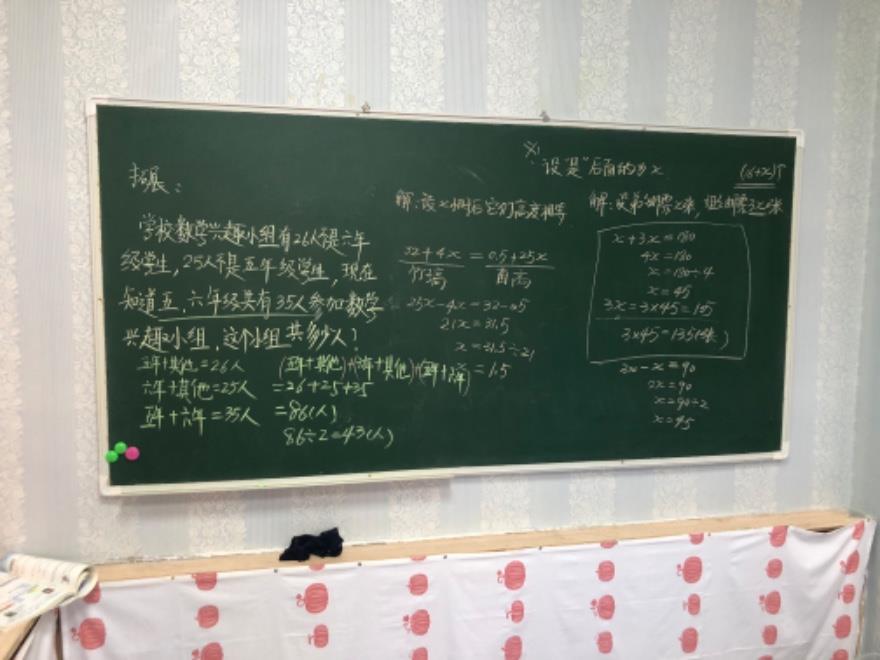 拓展：
学校数学兴趣小组有26人不是六年
级学生，25人不是五年级学生，现在
知道五、六年级共有35人参加数学
兴趣小组，这个小组共多少人？
五年+其他=26人
六年+其他=25人
五年+六年=35人
(五年+其他)+(六年+其他)+(五年+六年)
=26+25+35
=86(人)
86÷2=43(人)
解：设x 它们高度相等
32+4x = 0.5+25x
竹高 苗高
25x-4x=32-0.5
21x=31.5
x=31.5÷21
x=1.5
※：设"是"后面的为x
解：x米，3x米
x+3x=180
4x=180
x=180÷4
x=45
3x=3×45=135
3×45=135(米)
3x-x=90
2x=90
x=90÷2
x=45